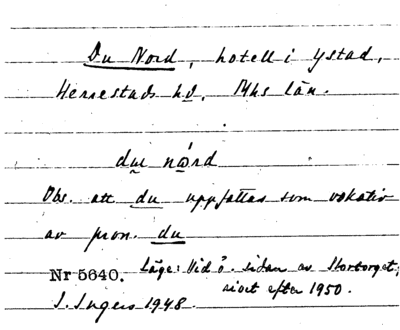 Du Nord, hotell i Ystad,
Herrestads hd, Mhs län.
du nó̱rd
Obs. att du uppfattas som vokativ
av pron. du
Nr 5640. Läge: Vid ö. sidan av Stortorget;
rivet efter 1950.
I. Ingers 1948.